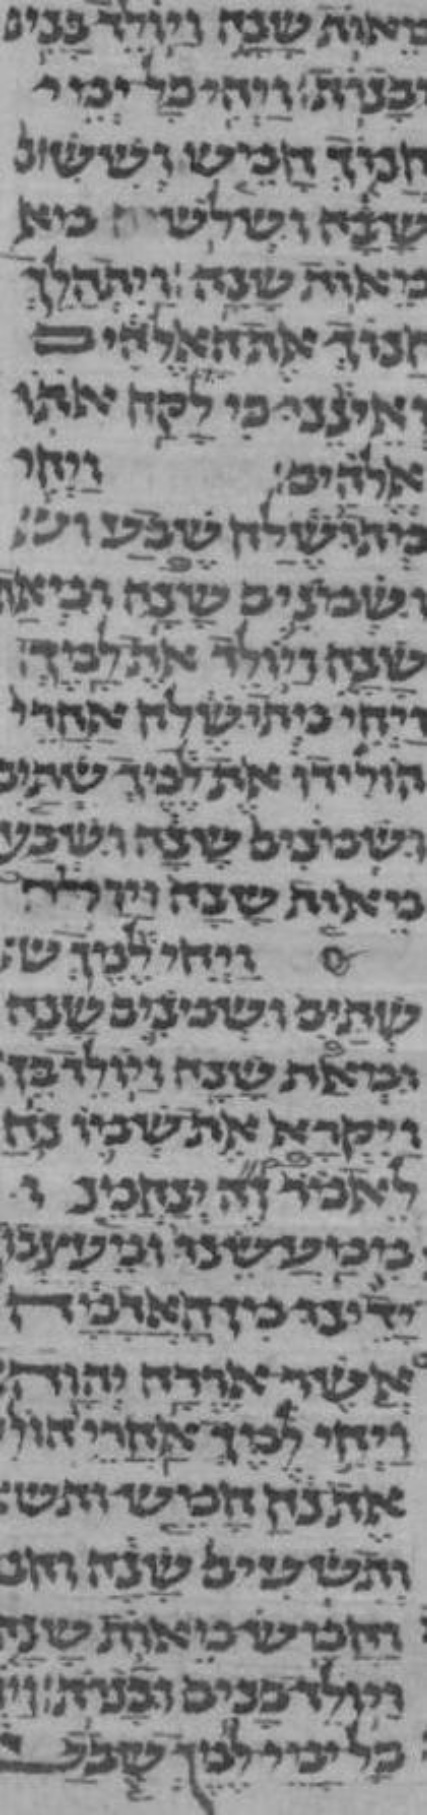 מֵאוֹת שָׁנָה וַיּוֹלֶד בָּנִים
וּבָנוֹת׃ וַיְהִי כָּל יְמֵי
חֲנוֹךְ חָמֵשׁ וְשִׁשִּׁים
שָׁנָה וּשְׁלֹשׁ
מֵאוֹת שָׁנָה׃ וַיִּתְהַלֵּךְ
חֲנוֹךְ אֶת הָאֱלֹהִים
וְאֵינֶנּוּ כִּי לָקַח אֹתוֹ
אֱלֹהִים׃ וַיְחִי
מְתוּשֶׁלַח שֶׁבַע
וּשְׁמֹנִים שָׁנָה וּמְאַת
שָׁנָה וַיּוֹלֶד אֶת לָמֶךְ׃
וַיְחִי מְתוּשֶׁלַח אַחֲרֵי
הוֹלִידוֹ אֶת לֶמֶךְ שְׁתַּיִם
וּשְׁמוֹנִים שָׁנָה וּשְׁבַע
מֵאוֹת שָׁנָה
וַיְחִי לֶמֶךְ
שְׁתַּיִם וּשְׁמֹנִים שָׁנָה
וּמְאַת שָׁנָה וַיּוֹלֶד בֵּן׃
וַיִּקְרָא אֶת שְׁמוֹ נֹחַ
לֵאמֹר זֶה יְנַחֲמֵנוּ
מִמַּעֲשֵׂנוּ וּמֵעִצְּבוֹן
יָדֵינוּ מִן הָאֲדָמָה
אֲשֶׁר אֵרְרָהּ יְהוָה׃
וַיְחִי לֶמֶךְ אַחֲרֵי הוֹלִ
אֶת נֹחַ חָמֵשׁ
וְתִשְׁעִים שָׁנָה
וַחֲמֵשׁ מֵאוֹת שָׁנָה
וַיּוֹלֶד בָּנִים וּבָנוֹת׃
כָּל יְמֵי לֶמֶךְ שֶׁבַע